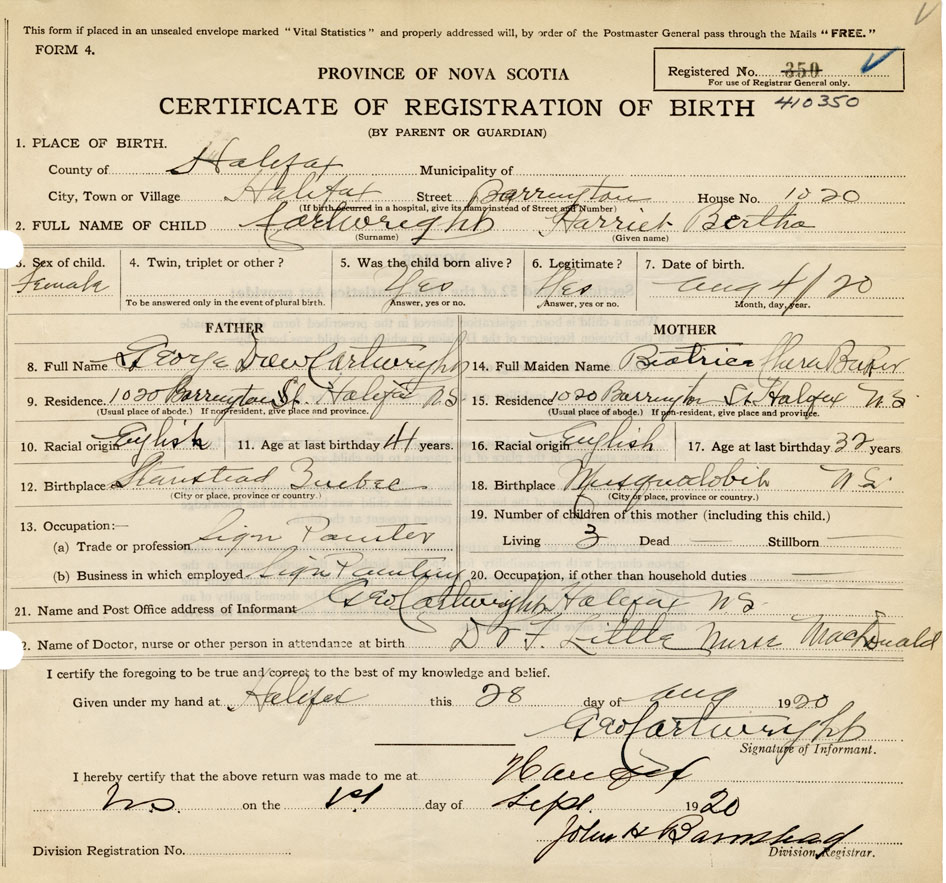 This form if placed in an unsealed envelope marked "Vital Statistics" and properly addressed will, by order of the Postmaster General pass through the Mails "FREE."
FORM 4.
PROVINCE OF NOVA SCOTIA
Registered No. 350
For use of Registrar General only.
410350
CERTIFICATE OF REGISTRATION OF BIRTH
(BY PARENT OR GUARDIAN)
1. PLACE OF BIRTH.
County of Halifax Municipality of
City, Town or Village Halifax Street Barrington House No. 1020
(If birth occurred in a hospital, give its name instead of Street and Number)
2. FULL NAME OF CHILD Cartwright Harriet Bertha
(Surname) (Given name)
3. Sex of child. 4. Twin, triplet or other? 5. Was the child born alive? 6. Legitimate? 7. Date of birth.
Female Yes Yes Aug 4/20
To be answered only in the event of plural birth. Answer, yes or no. Answer, yes or no. Month, day, year.
FATHER MOTHER
8. Full Name George Dow Cartwright 14. Full Maiden Name Beatrice Clara Baker
9. Residence. 1020 Barrington St. Halifax NS 15. Residence 1020 Barrington St. Halifax NS
(Usual place of abode.) If non-resident, give place and province. (Usual place of abode.) If non-resident, give place and province.
10. Racial origin English 11. Age at last birthday 41 years. 16. Racial origin English 17. Age at last birthday 32 years
12. Birthplace Stanstead Quebec 18. Birthplace Musquodobit NS
(City or place, province or country.) (City or place, province or country.)
13. Occupation:— 19. Number of children of this mother (including this child.)
(a) Trade or profession Sign Painter Living 3 Dead — Stillborn —
(b) Business in which employed Sign Painting 20. Occupation, if other than household duties —
21. Name and Post Office address of Informant Geo Cartwright Halifax NS
2. Name of Doctor, nurse or other person in attendance at birth Dr F. Little Nurse MacDonald
I certify the foregoing to be true and correct to the best of my knowledge and belief.
Given under my hand at Halifax this 28 day of Aug 1920
Geo Cartwright
Signature of Informant.
I hereby certify that the above return was made to me at Halifax
N.S. on the 1st day of Sept. 1920
John H Barnstead
Division Registration No. Division Registrar.